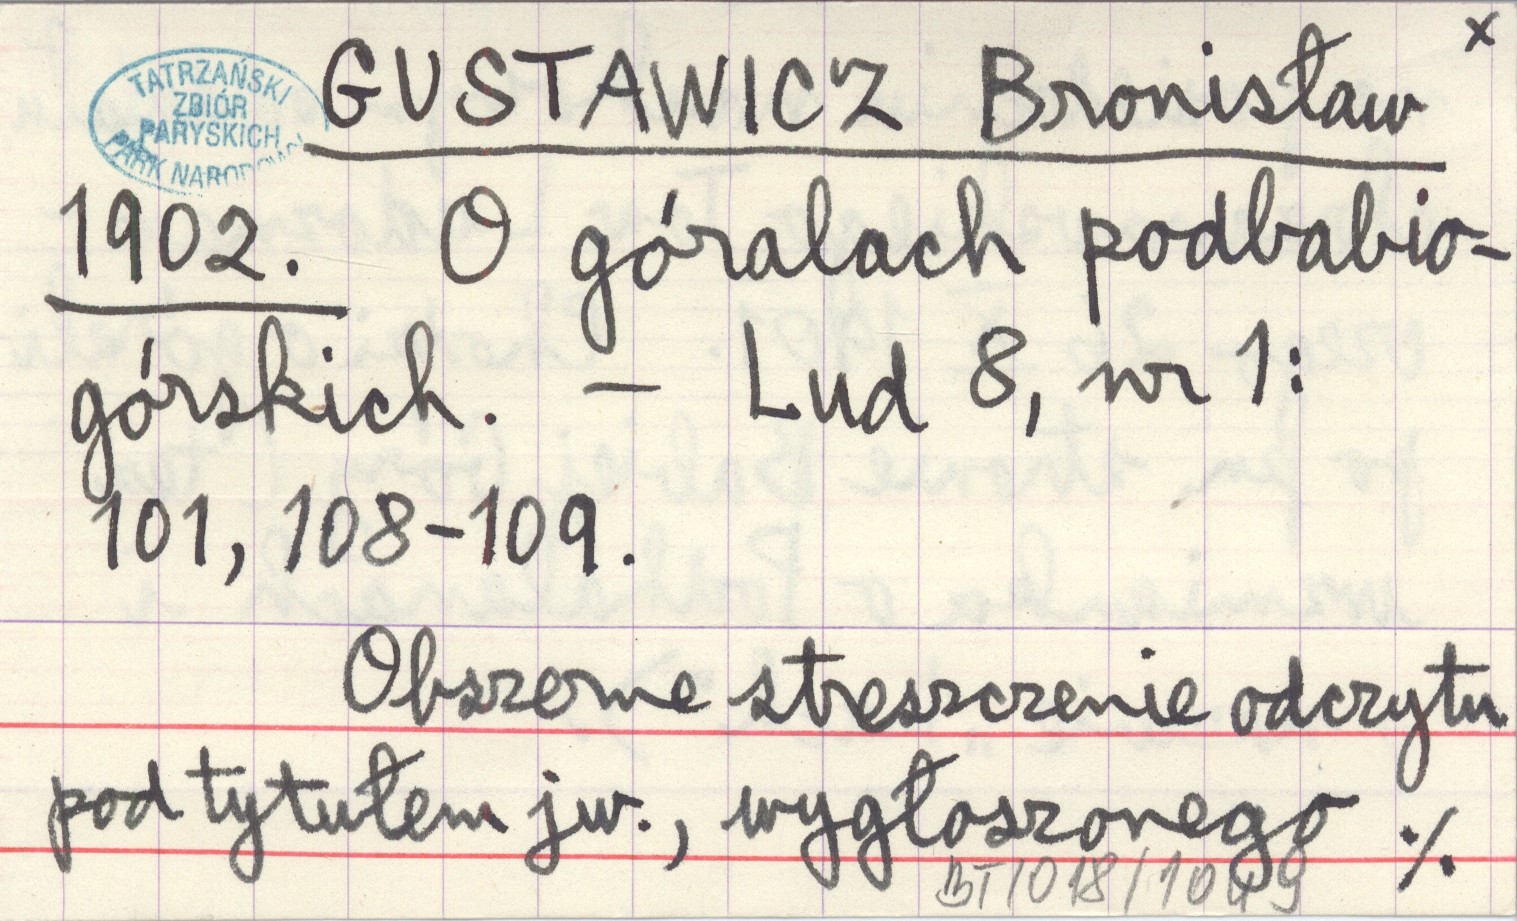 x
TATRZAŃSKI
ZBIÓR
PARYSKICH
PARK NARODOWY
GUSTAWICZ Bronisław
1902. O góralach podbabio-
górskich. — Lud 8, nr 1:
101, 108-109.
Obszerne streszczenie odczytu
pod tytułem jw., wygłoszonego ./.
BT/018/1049